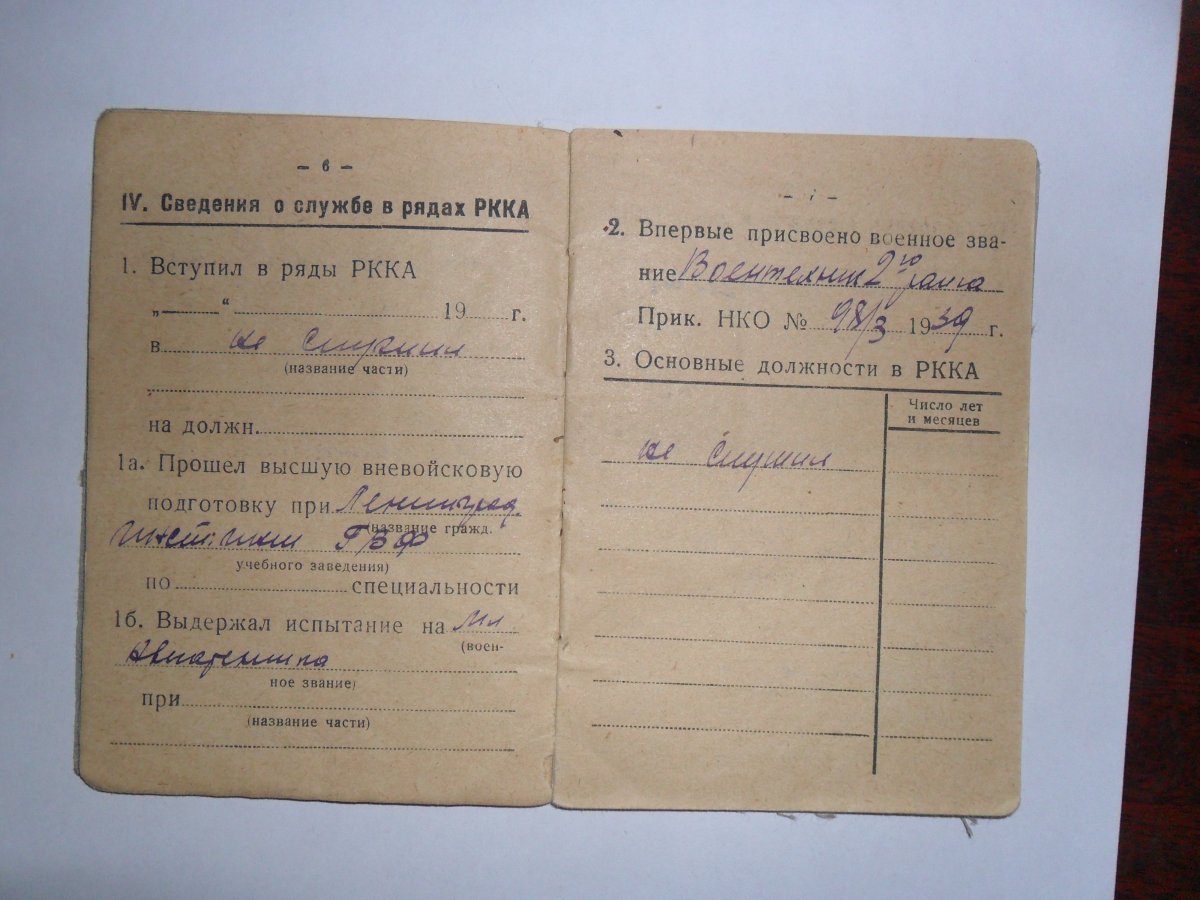 – 6 –
IV. Сведения о службе в рядах РККА
1. Вступил в ряды РККА
„——“ 19 г.
в не служил
(название части)
на должн.
1а. Прошел высшую вневойсковую
подготовку при Ленинград.
(название гражд.
ГВФ
учебного заведения)
по специальности
1б. Выдержал испытание на Мл
(воен-
Авиатехника
ное звание)
при
(название части)
2. Впервые присвоено военное зва-
ние Воентехник 2го ранга
Прик. НКО № 98/3 1939 г.
3. Основные должности в РККА
Число лет
и месяцев
не служил